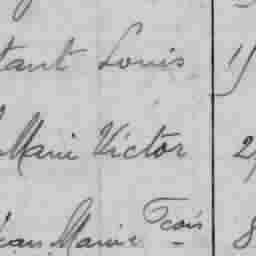 tant Louis
Marie Victor 2
Jean Marie Fcois 8